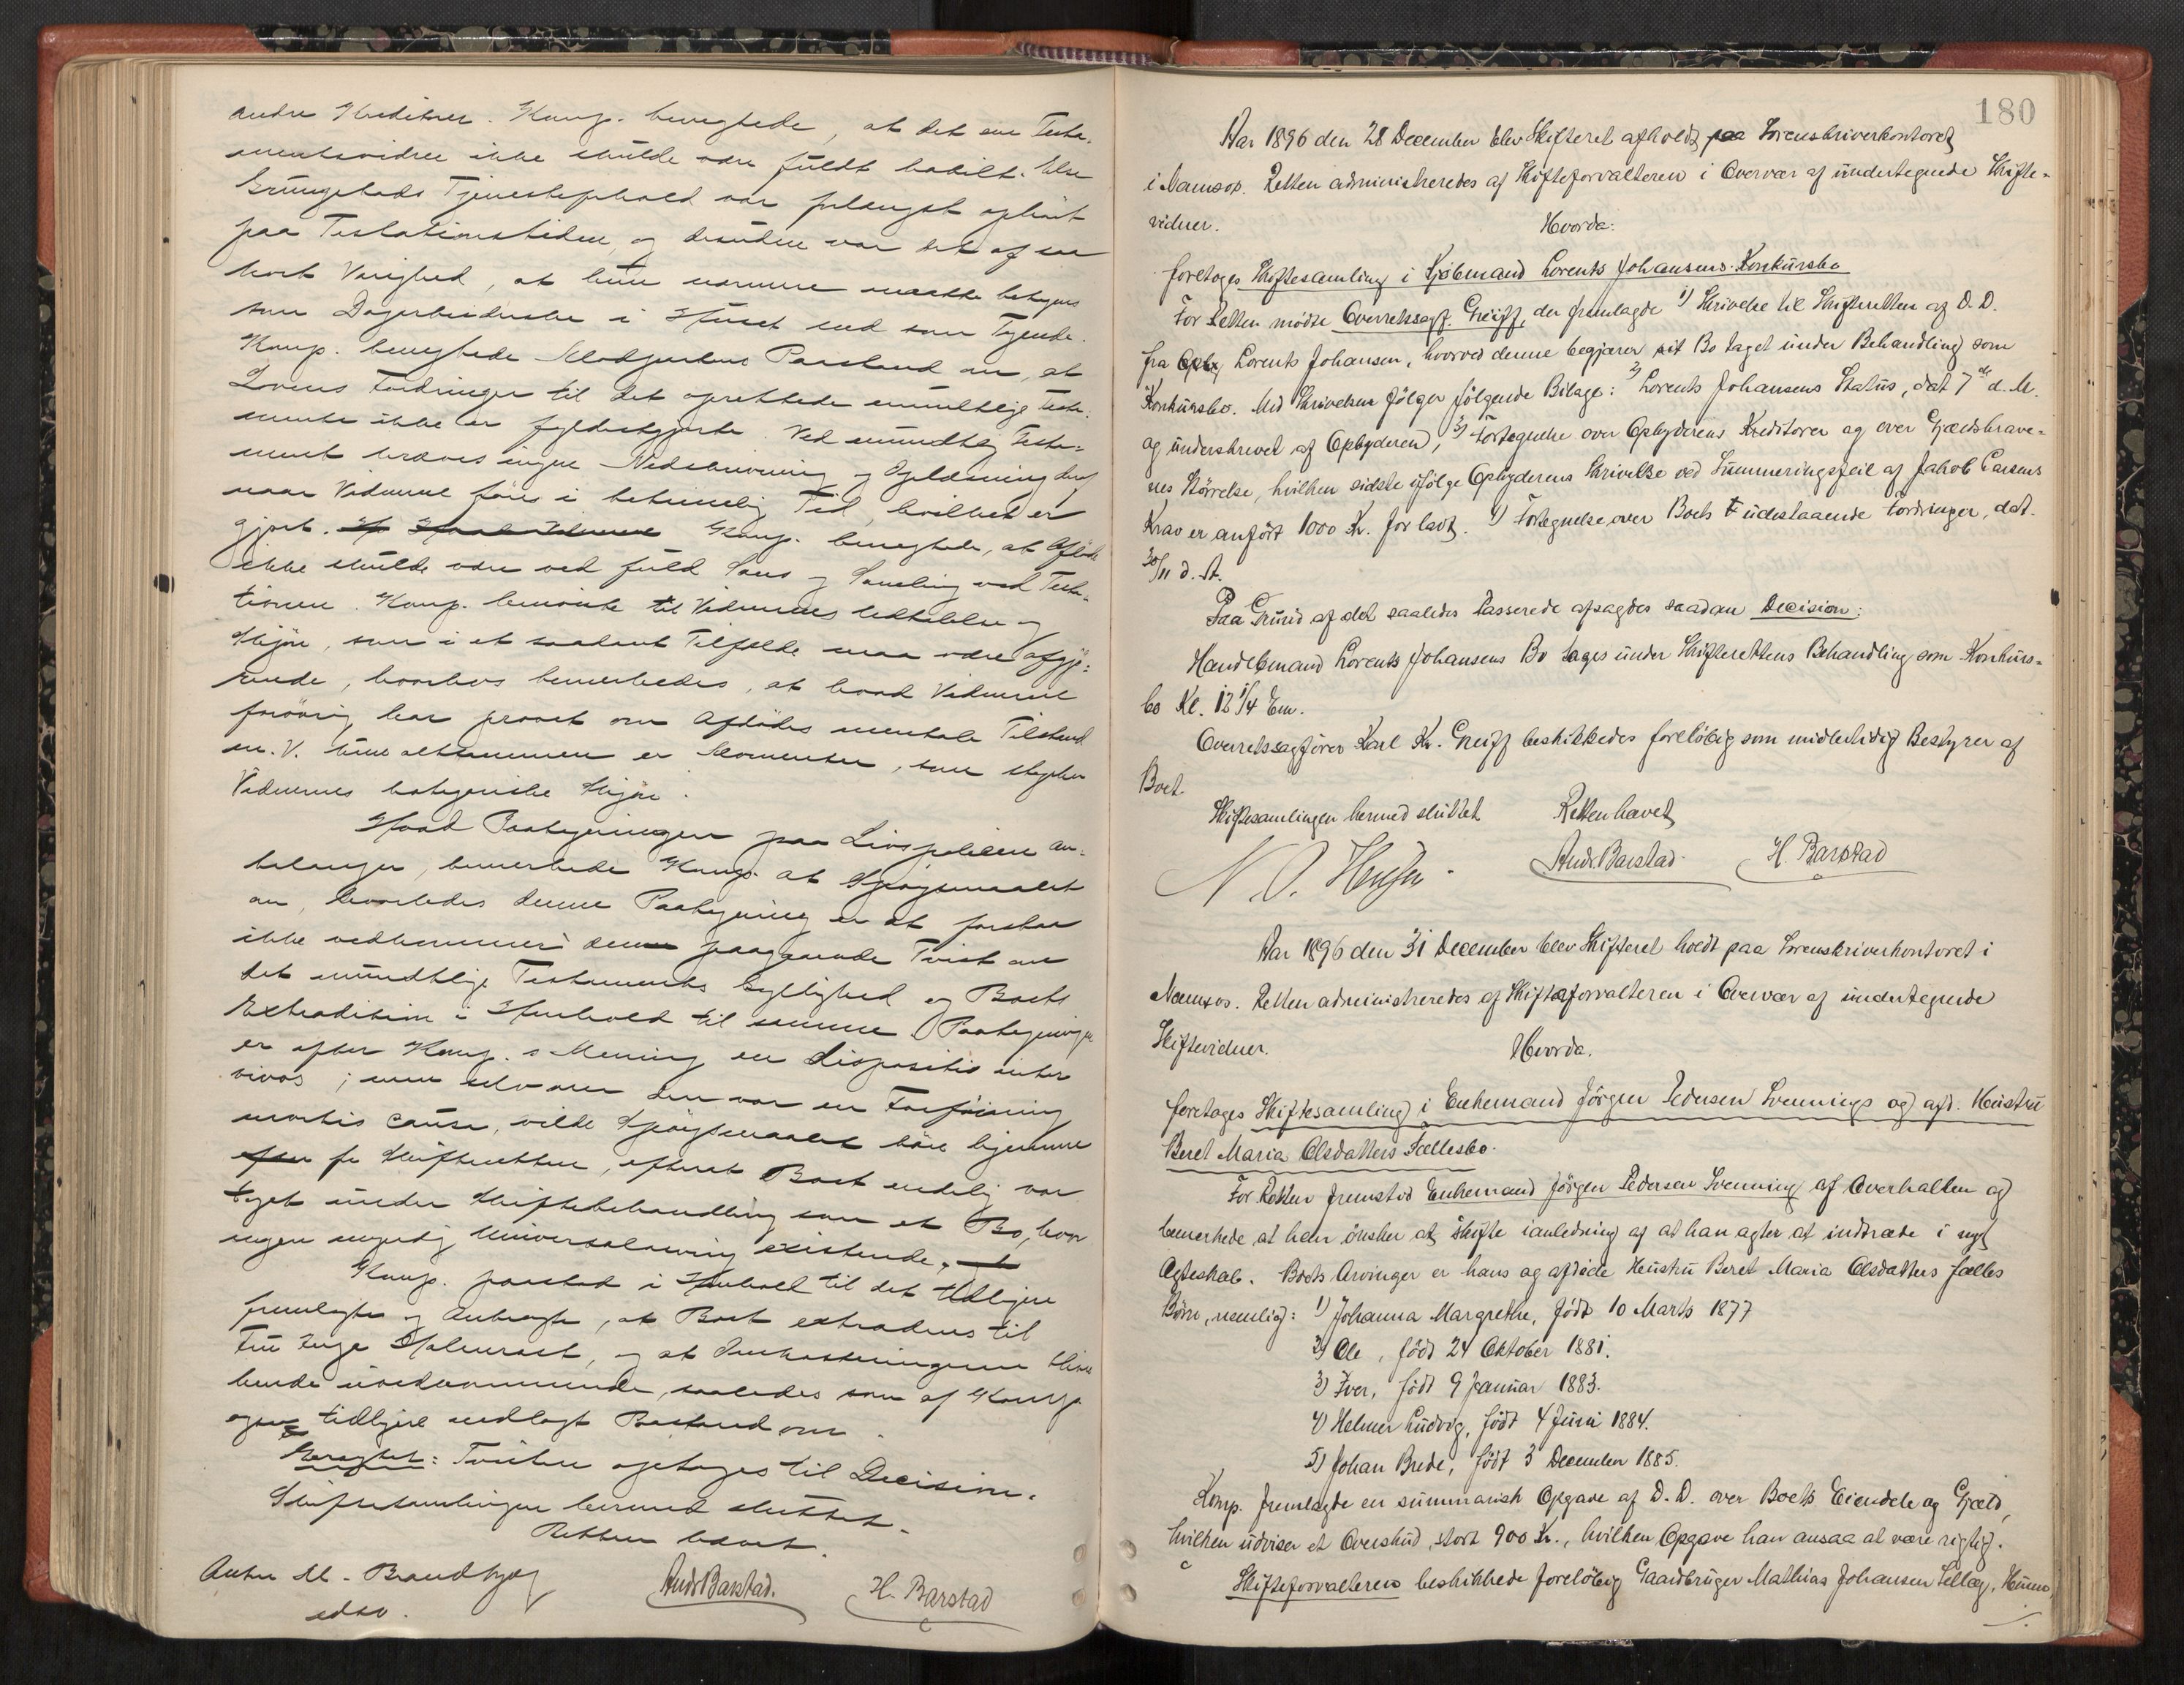 andre Kreditorer. Komp. benegtede, at det ene Testa-
mentsvidne ikke skulde være fuldt habilt. Else
Grungstads Tjenesteforhold var forlængst ophørt
paa Testationstiden, og desuden var det af saa
kort Varighed, at hun nærmere maatte betegnes
som Dagarbeiderske i Huset end som Tyende.
Komp. benegtede Modpartens Paastand om, at
Lovens Fordringer til det oprettede mundtlige Testa-
mente ikke er fyldestgjorte. Ved mundtlig Testa-
ment kræves ingen Nedskrivning og Oplæsning deraf
naar Vidnerne føres i betimelig Tid, hvilket er
gjort. Komp. benegtede, at Afdøde
ikke skulde være ved fuld Sans og Samling ved Testa-
tionen. Komp. henviste til Vidnernes Udtalelse og
Skjøn, som i et saadant Tilfælde maa være afgjø-
rende, hvorhos bemerkedes, at hvad Vidnerne
forøvrig har provet om Afdødes mentale Tilstand
m. V. altsammen er Momenter, som styrker
Vidnernes kategoriske Skjøn.
Hvad Paategningen paa Livspolicen an-
belanger, bemerkede Komp. at Spørgsmaalet
om, hvorledes denne Paategning er at forstaa
ikke vedkommer den paagaaende Tvist om
det mundtlige Testaments Gyldighed og Boets
Extradition i Henhold til samme. Paategningen
er efter Komp.s Mening en dispositio inter
vivos; men selv om den var en Forføining
mortis causa, vilde Spørgsmaalet høre hjemme
for Skifteretten, efterat Boet endelig var
taget under Skiftebehandling som et Bo, hvor
ingen myndig Universalarving existerede.
Komp. paastod i Henhold til det tidligere
fremlagte og Anbragte, at Boet extraderes til
Fru Inga Holmrast, og at Omkostningerne blive
Boet uvedkommende, saaledes som af Komp.
ogsaa tidligere nedlagt Paastand om.
Eragtet: Tvisten optages til Decision.
Skiftesamlingen hermed sluttet.
Retten hævet.
Anton M. Brandtzæg
edsv.
Andr Barstad. H. Barstad
180
Aar 1896 den 28 December blev Skifteret afholdt paa Sorenskriverkontoret
i Namsos. Retten administreredes af Skifteforvalteren i Overvær af undertegnede Skifte-
vidner.
Hvorda:
foretoges Skiftesamling i Kjøbmand Lorents Johansens Konkursbo
For Retten mødte Overretssagf. Greiff, der fremlagde 1) Skrivelse til Skifteretten af D. D.
fra Opby Lorents Johansen, hvorved denne begjærer sit Bo taget under Behandling som
Konkursbo. Med Skrivelsen følger følgende Bilage: 2) Lorents Johansens Status, dat 7de d. M.
og underskrevet af Opbyderen, 3) Fortegnelse over Opbyderens Kreditorer og over Gjældskrave-
nes Størrelse, hvilken sidste ifølge Opbyderens Skrivelse ved Summeringsfeil af Jakob Larsens
Krav er anført 1000 Kr. for lavt. 4) Fortegnelse over Boets udestaaende Fordringer, dat.
30/11 d. A.
Paa Grund af det saaledes Passerede afsagdes saadan Decision:
Handelsmand Lorents Johansens Bo tages under Skifterettens Behandling som Konkurs-
bo Kl. 12 1/4 Em.
Overretssagfører Karl Kr. Greiff beskikkedes foreløbig som midlertidig Bestyrer af
Boet.
Skiftesamlingen hermed sluttet Retten hævet
N. O. Hensen. Andr Barstad. H. Barstad
Aar 1896 den 31 December blev Skifteret holdt paa Sorenskriverkontoret i
Namsos. Retten administreredes af Skifteforvalteren i Overvær af undertegnede
Skiftevidner.
Hvorda.
foretoges Skiftesamling i Enkemand Jørgen Pedersen Svennings og afd. Hustru
Beret Maria Olsdatters Fællesbo.
For Retten fremstod Enkemand Jørgen Pedersen Svenning af Overhallen og
bemerkede at han ønsker at skifte i anledning af at han agter at indtræde i nyt
Ægteskab. Boets Arvinger er hans og afdøde Hustru Beret Maria Olsdatters fælles
Børn, nemlig: 1) Johanna Margrethe, født 10 Marts 1877
2) Ole, født 24 Oktober 1881.
3) Iver, født 9 Januar 1883.
4) Helmer Ludvig, født 4 Juni 1884.
5) Johan Brede, født 3 December 1885.
Komp. fremlagde en summarisk Opgave af D. D. over Boets Eiendele og Gjæld,
hvilken udviser et Overskud, stort 900 Kr., hvilken Opgave han ansaa at være rigtig.
Skifteforvalteren beskikkede foreløbig Gaardbruger Mathias Johansen Sellæg, Hunn,